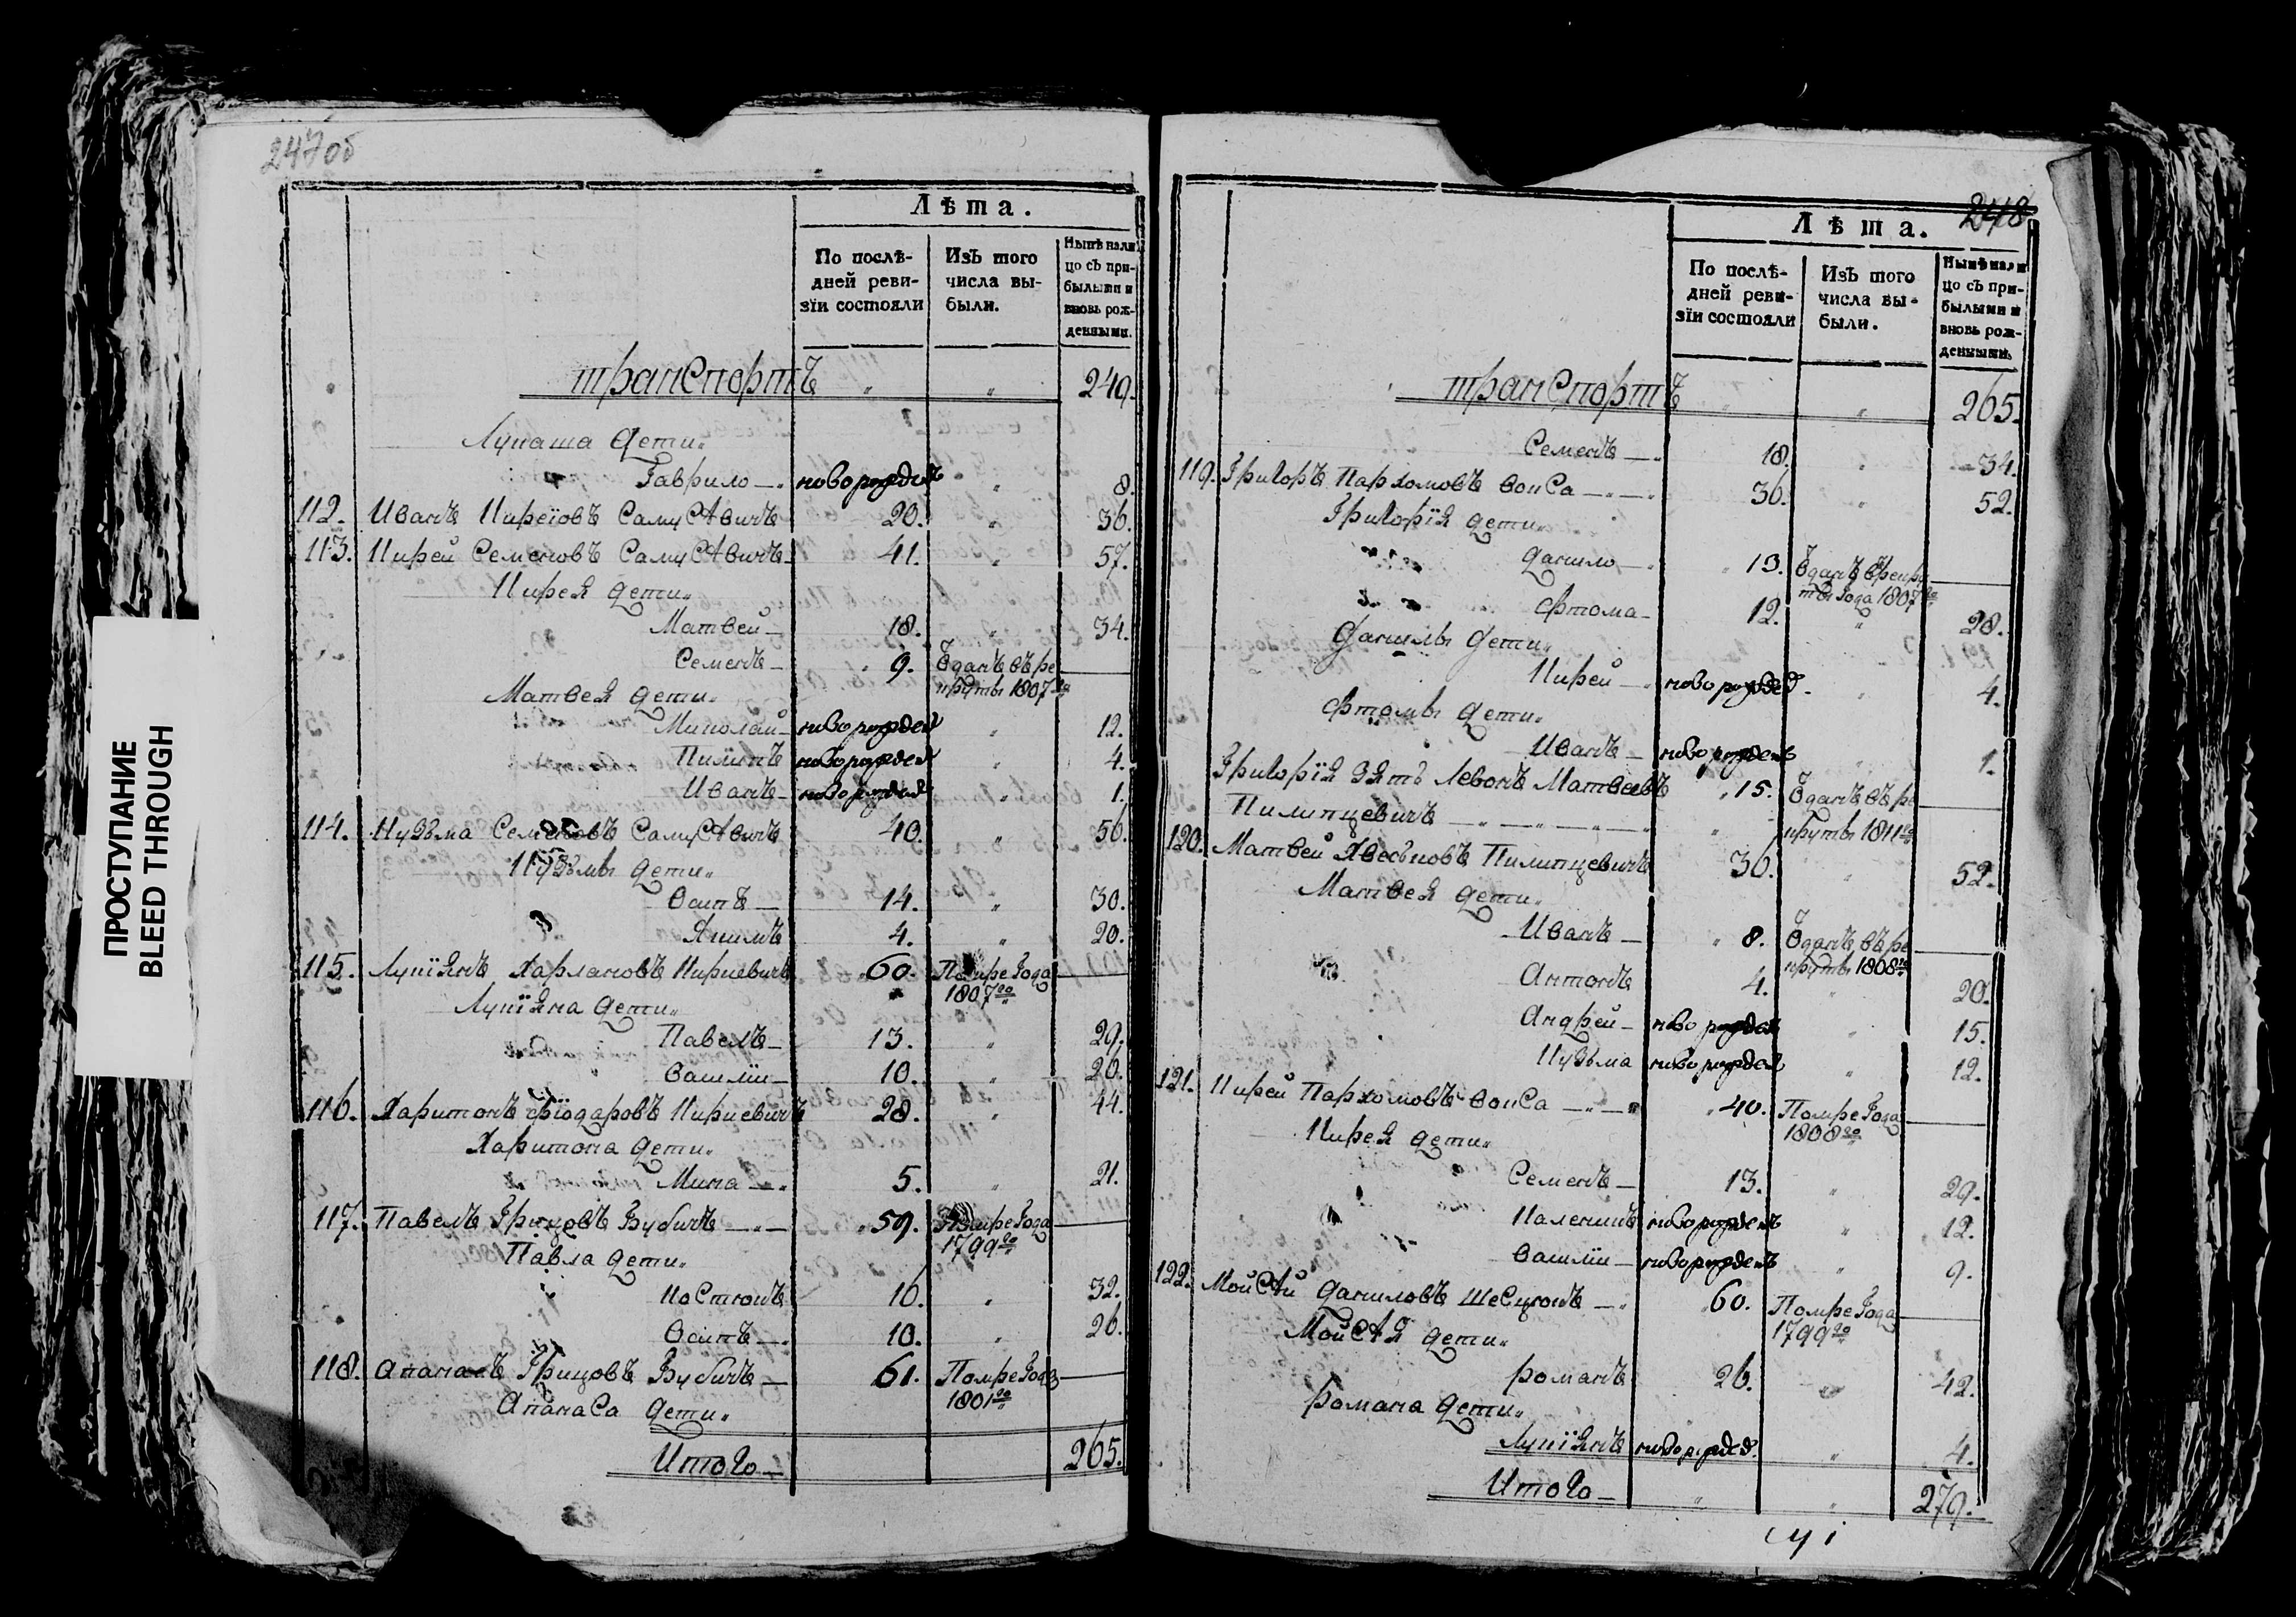 247об
ПРОСТУПАНИЕ
BLEED THROUGH
Лѣта.
По послѣ-
дней реви-
зїи состояли
Изъ того
числа вы-
были.
Нынѣ нали
цо съ при-
былыми и
вновь рож-
денными.
транспортъ „ „ 249.
Лукаша дети„
Гаврило — новорожден „ 8.
112. Иванъ Кирѣіовъ Самусѣвичъ 20. „ 36.
113. Кирей Семеновъ Самусѣвичъ 41. „ 57.
Кирея дети„
Матвей — 18. „ 34.
Семенъ — 9. Ѿданъ въ ре —
круты 1807го
Матвея дети„
Миколай — новорожден „ 12.
Пилипъ новорожден „ 4.
Иванъ — новорожден „ 1.
114. Кузьма Семеновъ Самусѣвичъ 40. „ 56.
Кузьмы дети„
Осипъ — 14. „ 30.
Якимъ 4. „ 20.
115. Лукіянъ Харлановъ Киркевичъ 60. Помре года —
1807го
Лукіяна дети„
Павелъ — 13. „ 29.
Василій — 10. „ 26.
116. Харитонъ Фіодаровъ Киркевичъ 28. „ 44.
Харитона дети„
Мина — 5. „ 21.
117. Павелъ Грицовъ Бубичъ — 59. Помре года —
1799го
Павла дети„
Костюкъ 16. „ 32.
Осипъ — 10. „ 26.
118. Апанасъ Грицовъ Бубичъ — 61. Помре года —
1801го
Апанаса дети„
Итого — 265.
248
Лѣта.
По послѣ-
дней реви-
зїи состояли
Изъ того
числа вы-
были.
Нынѣ нали
цо съ при-
былыми и
вновь рож-
денными.
транспортъ „ „ 265.
Семенъ — 18. „ 34.
119. Григоръ Пархомовъ Вокса — 36. „ 52.
Григорія дети„
Данило — 13. Ѿданъ в рекру —
ты года 1807го
Фтома — 12. „ 28.
Данилы дети„
Кирей — новорожд. „ 4.
Фтомы дети„
Иванъ — новорожденъ „ 1.
Григорія зять Левонъ Матвеевъ 15. Ѿданъ въ ре —
Пилипцевичъ — круты 1811го
120. Матвей Пилипцевичъ 36. „ 52.
Матвея дети„
Иванъ — 8. Ѿданъ въ ре —
круты 1808го
Антонъ 4. „ 20.
Андрей — новорожден „ 15.
Кузьма новорожден „ 12.
121. Кирей Пархомовъ Вокса — 40. Помре года —
1808го
Кирея дети„
Семенъ — 13. „ 29.
Каленикъ новорожденъ „ 12.
Василій — новорожденъ „ 9.
122. Мойсѣй Даниловъ Шесцюкъ — 60. Помре года —
1799го
Мойсѣя дети„
Романъ 26. „ 42.
Романа дети„
Лукіянъ новорожд. „ 4.
Итого — „ „ 279.